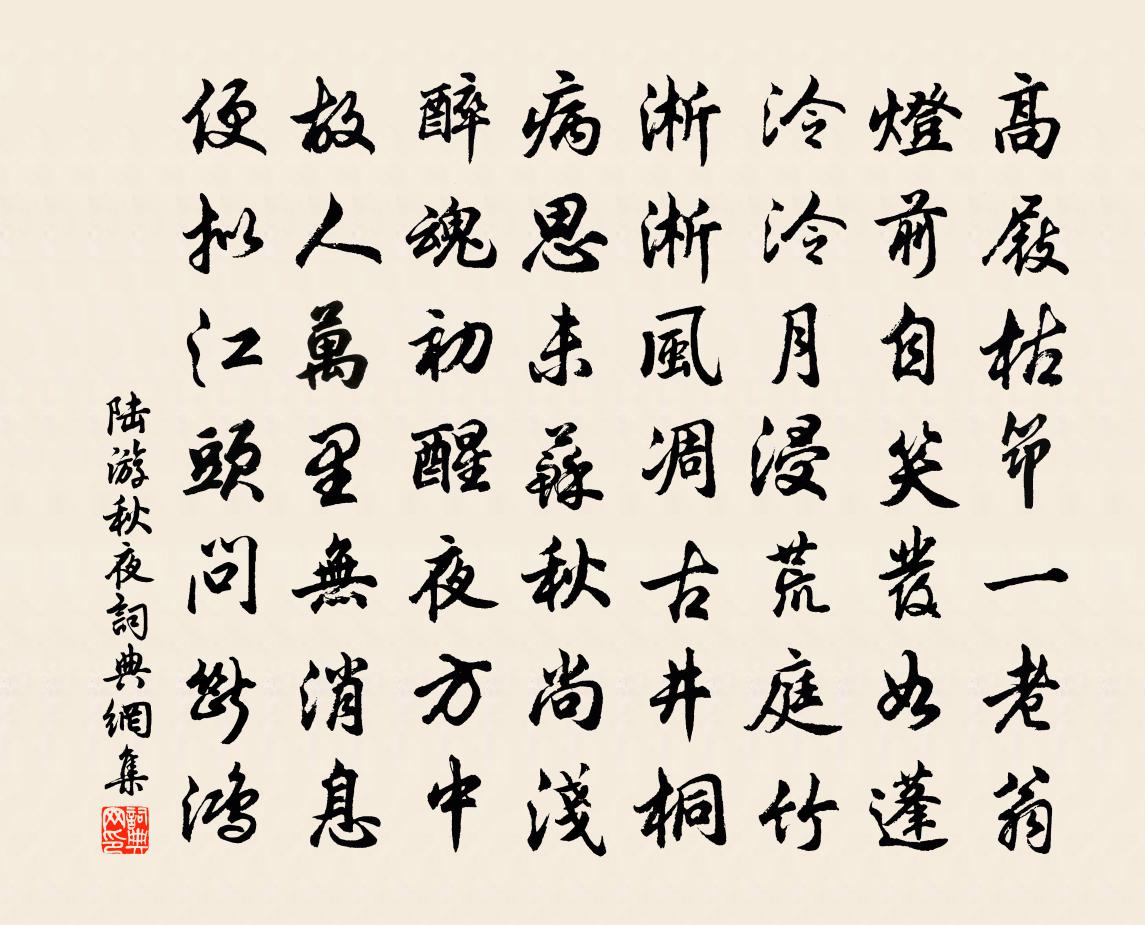 高屐枯笻一老翁
燈前自笑髮如蓬
泠泠月浸荒庭竹
淅淅風凋古井桐
病思未蘇秋尚淺
醉魂初醒夜方中
故人萬里無消息
便拟江頭問斷鴻
陆游秋夜詞典網集
詞典网印